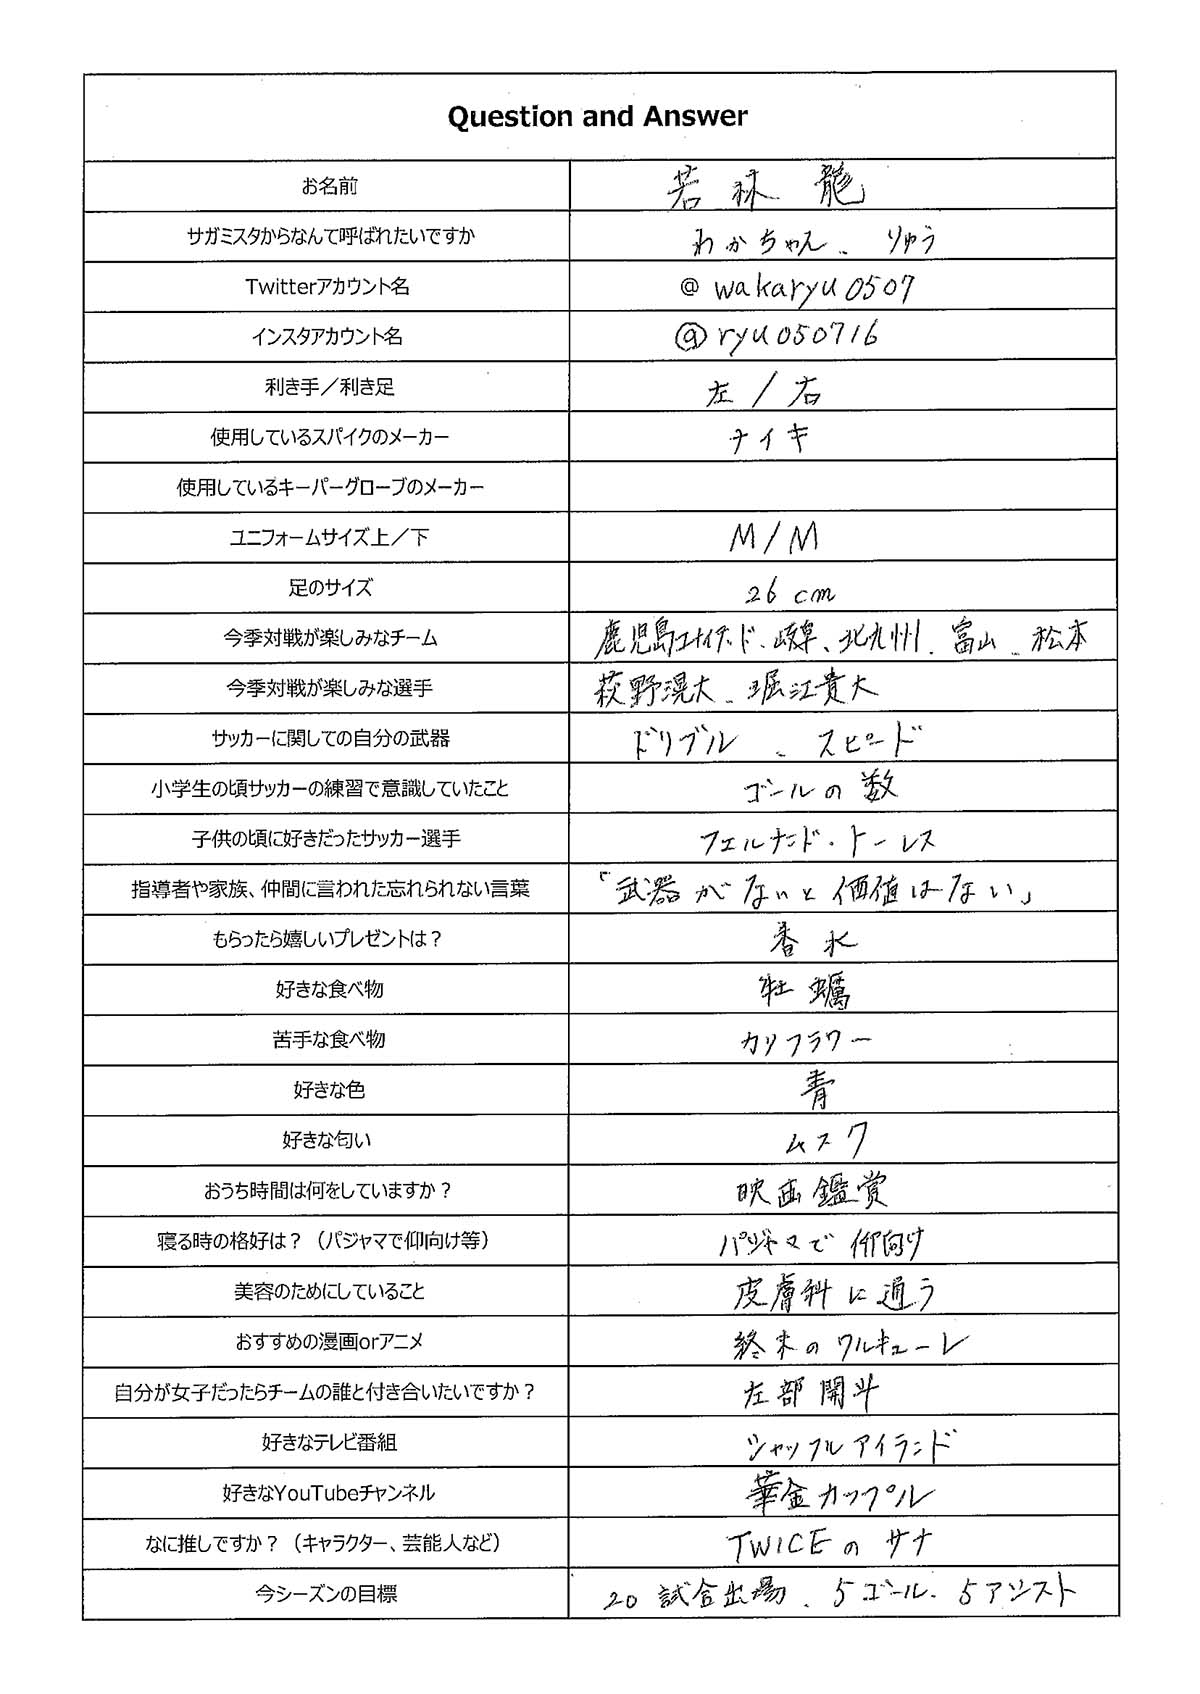 Question and Answer
お名前 若林 龍
サガミスタからなんて呼ばれたいですか わかちゃん、りゅう
Twitterアカウント名 @wakaryu0507
インスタアカウント名 @ryu050716
利き手／利き足 左／右
使用しているスパイクのメーカー ナイキ
使用しているキーパーグローブのメーカー
ユニフォームサイズ上／下 M/M
足のサイズ 26cm
今季対戦が楽しみなチーム 鹿児島ユナイテッド、岐阜、北九州、富山、松本
今季対戦が楽しみな選手 萩野滉大、堀江貴大
サッカーに関しての自分の武器 ドリブル、スピード
小学生の頃サッカーの練習で意識していたこと ゴールの数
子供の頃に好きだったサッカー選手 フェルナンド・トーレス
指導者や家族、仲間に言われた忘れられない言葉 「武器がないと価値はない」
もらったら嬉しいプレゼントは？ 香水
好きな食べ物 牡蠣
苦手な食べ物 カリフラワー
好きな色 青
好きな匂い ムスク
おうち時間は何をしていますか？ 映画鑑賞
寝る時の格好は？（パジャマで仰向け等） パジャマで仰向け
美容のためにしていること 皮膚科に通う
おすすめの漫画orアニメ 終末のワルキューレ
自分が女子だったらチームの誰と付き合いたいですか？ 左部開斗
好きなテレビ番組 シャッフルアイランド
好きなYouTubeチャンネル 華金カップル
なに推しですか？（キャラクター、芸能人など） TWICEのサナ
今シーズンの目標 20試合出場、5ゴール、5アシスト